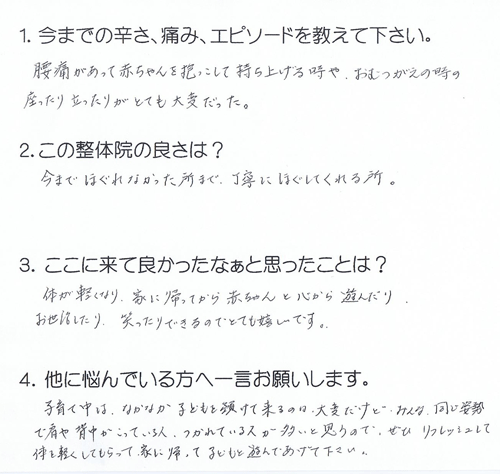 1. 今までの辛さ、痛み、エピソードを教えて下さい。
腰痛があって赤ちゃんを抱っこして持ち上げる時や、おむつがえの時の
座ったり立ったりがとても大変だった。
2. この整体院の良さは？
今までほぐれなかった所まで、丁寧にほぐしてくれる所。
3. ここに来て良かったなぁと思ったことは？
体が軽くなり、家に帰ってから赤ちゃんと心から遊んだり、
お世話したり、笑ったりできるのでとても嬉しいです。
4. 他に悩んでいる方へ一言お願いします。
子育て中は、なかなか子どもを預けて来るのは、大変だけど、みんな、同じ姿勢
で肩や背中がこっている人、つかれている人が多いと思うので、ぜひリフレッシュして
体を軽くしてもらって、家に帰って子どもと遊んであげて下さい。